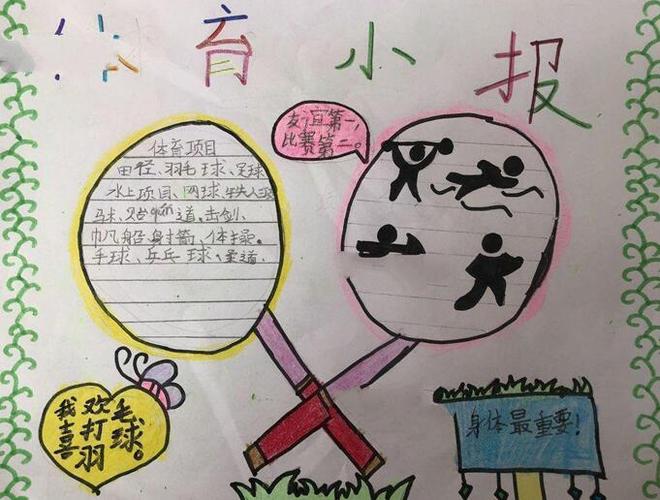 体育小报
友谊第一,
比赛第二。
体育项目
田径、羽毛球、足球
水上项目、网球、铁人三项
马术、跆拳道、击剑、
帆船、射箭、体操。
手球、乒乓球、柔道.
我喜
欢打羽
毛球。
身体最重要!